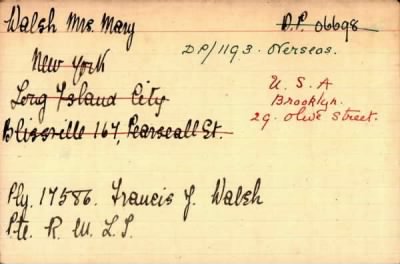 Walsh Mrs. Mary
D.P. 06698
DP/1193. Overseas.
New York
Long Island City
U. S. A
Brooklyn.
29. Olive Street.
Blissville 167, Pearseall St.
Ply. 17586. Francis J. Walsh
Pte. R. M. L. I.